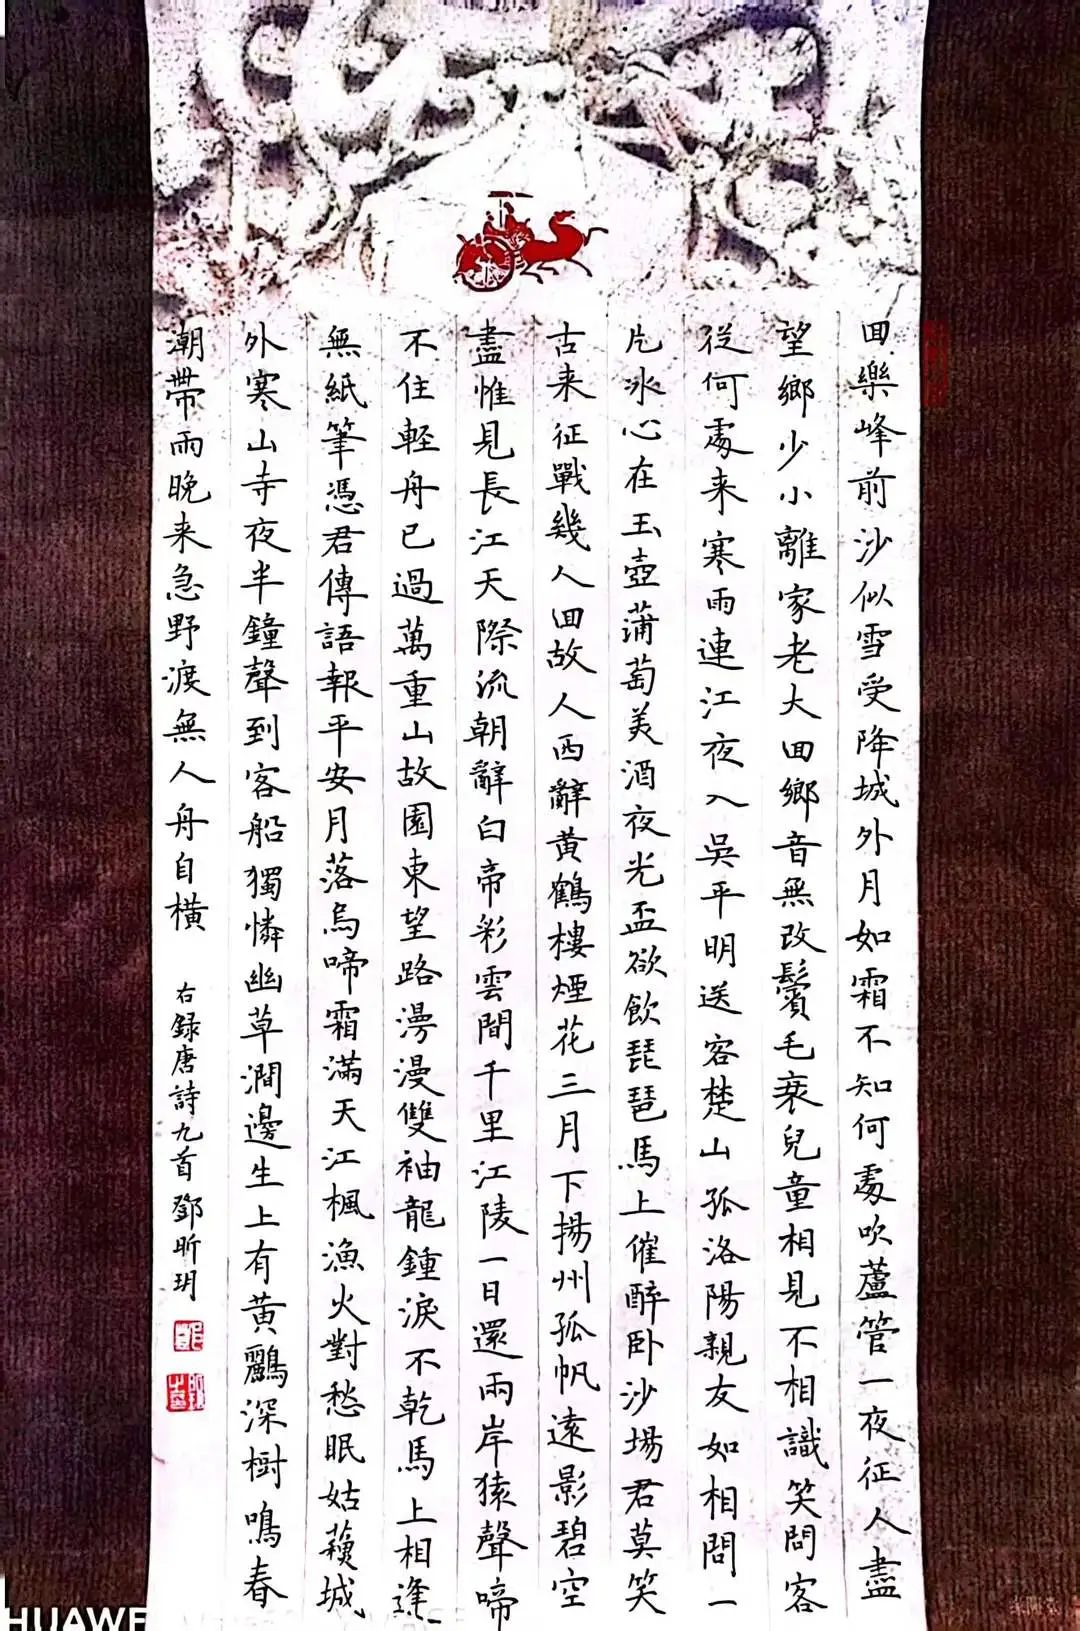 回樂峰前沙似雪受降城外月如霜不知何處吹蘆管一夜征人盡
望鄉少小離家老大回鄉音無改鬢毛衰兒童相見不相識笑問客
從何處来寒雨連江夜入吳平明送客楚山孤洛陽親友如相問一
片冰心在玉壺蒲萄美酒夜光盃欲飲琵琶馬上催醉卧沙場君莫笑
古来征戰幾人回故人西辭黄鶴樓煙花三月下揚州孤帆遠影碧空
盡惟見長江天際流朝辭白帝彩雲間千里江陵一日還兩岸猿聲啼
不住輕舟已過萬重山故園東望路漫漫雙袖龍鍾淚不乾馬上相逢
無紙筆憑君傳語報平安月落烏啼霜滿天江楓漁火對愁眠姑蘓城
外寒山寺夜半鐘聲到客船獨憐幽草澗邊生上有黄鸝深樹鳴春
潮帶雨晚来急野渡無人舟自橫
右録唐詩九首鄧昕玥
HUAWE